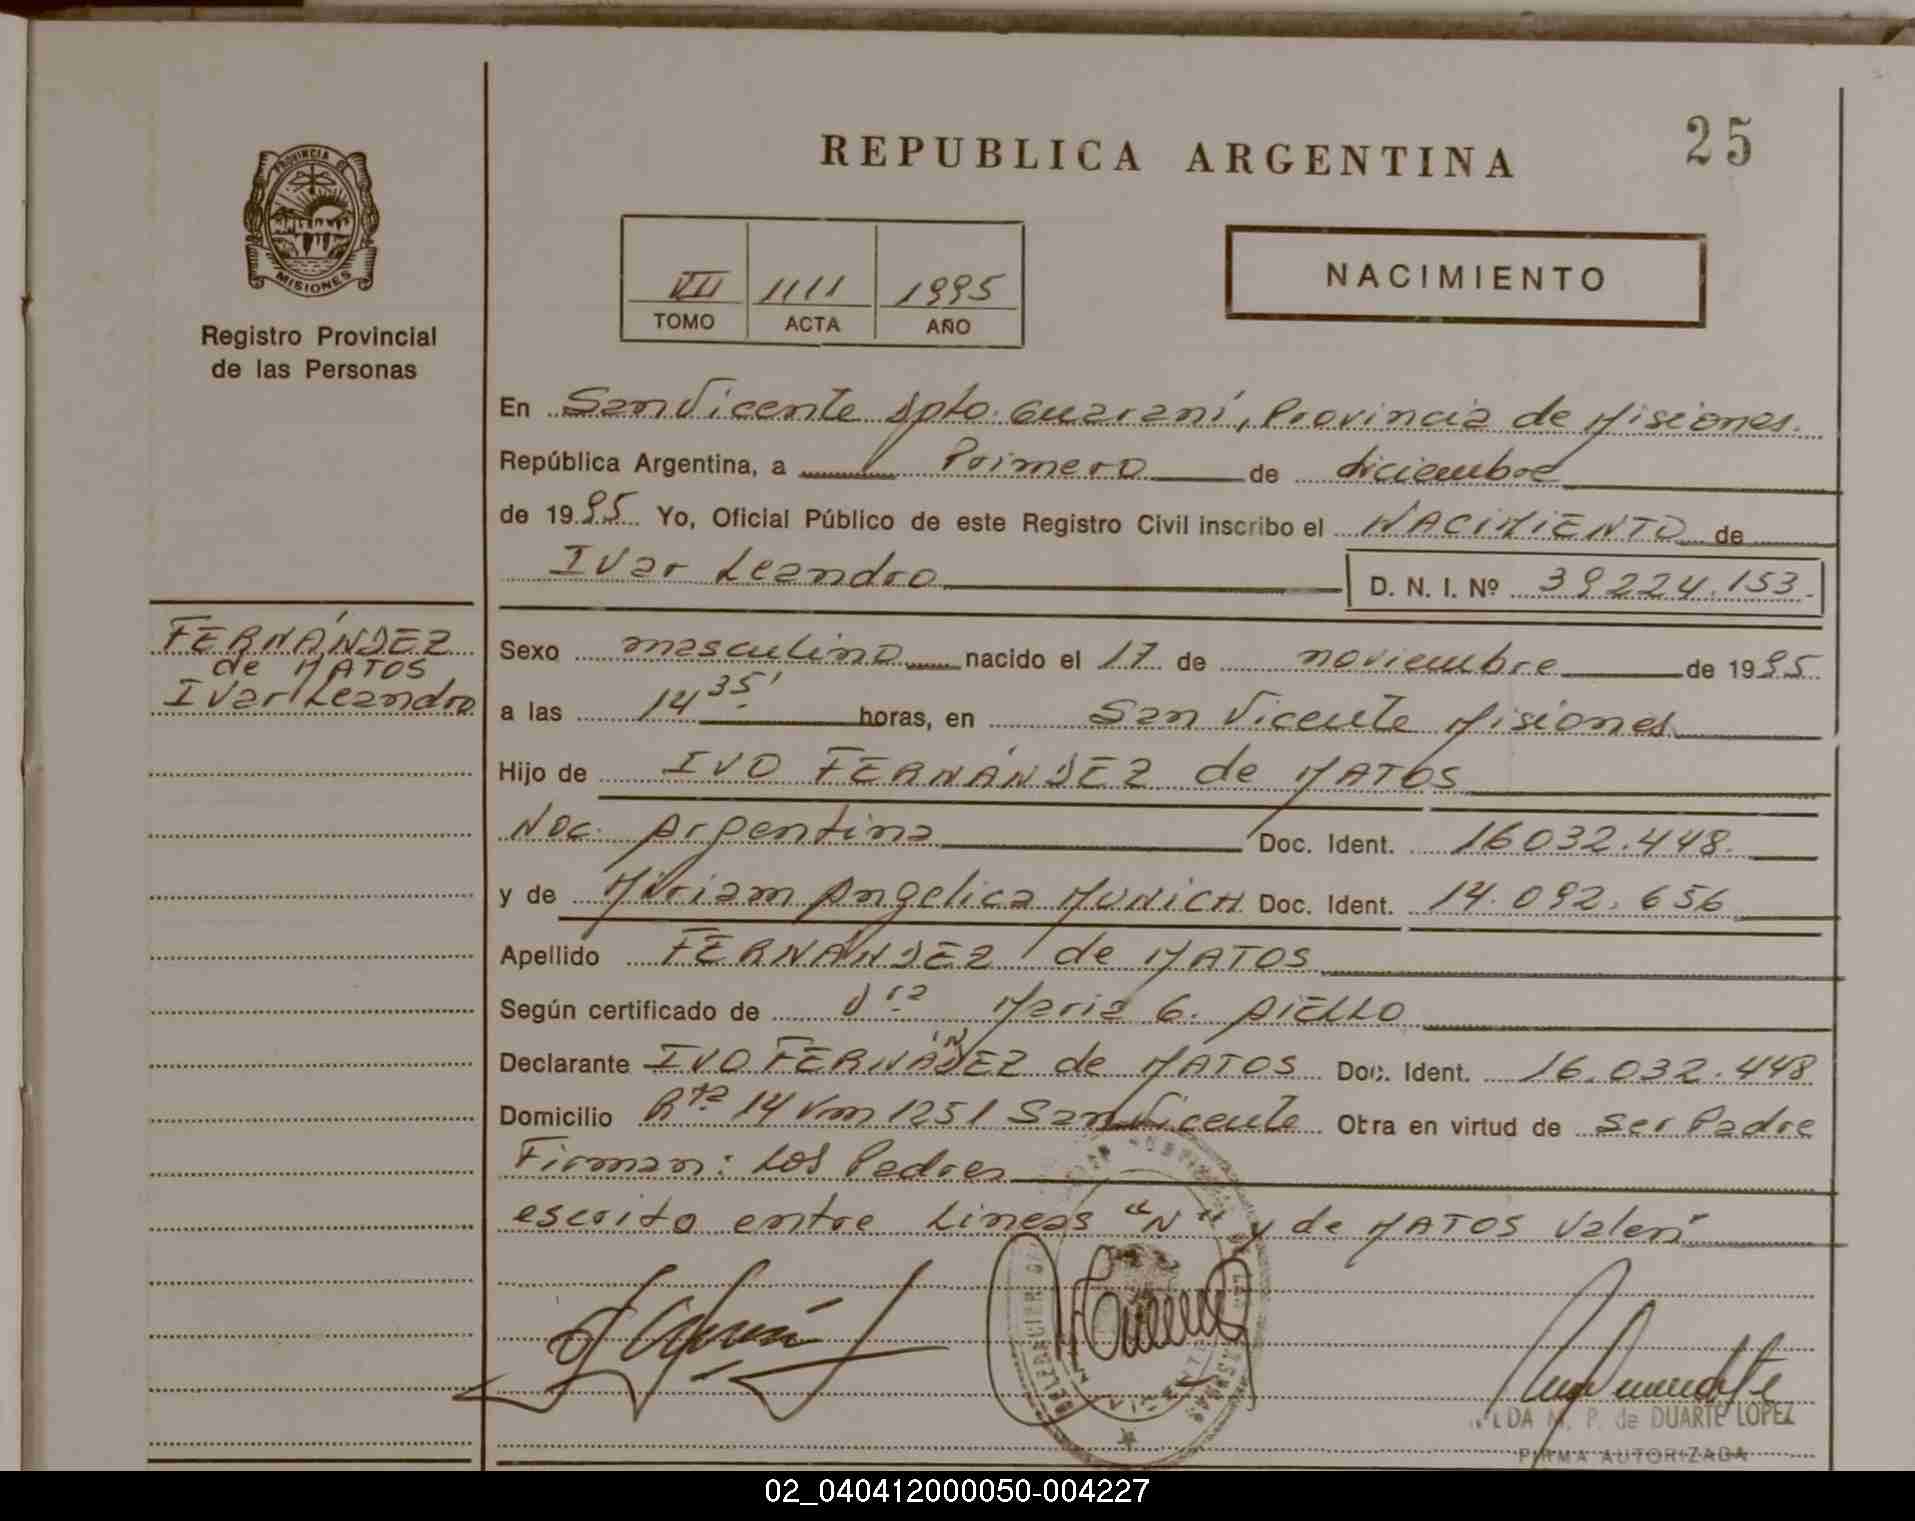 PROVINCIA DE
MISIONES
Registro Provincial
de las Personas
REPUBLICA ARGENTINA
25
VII 1111 1995
TOMO ACTA AÑO
NACIMIENTO
En San Vicente Dpto. Guaraní, Provincia de Misiones.
República Argentina, a Primero de diciembre
de 1995 Yo, Oficial Público de este Registro Civil inscribo el NACIMIENTO de
Ivar Leandro D. N. I. Nº 39224.153.
FERNÁNDEZ
de MATOS
Ivar Leandro
Sexo masculino nacido el 17 de noviembre de 1995
a las 14 35' horas, en San Vicente Misiones
Hijo de IVO FERNÁNDEZ de MATOS
Nac. Argentina Doc. Ident. 16032.448.
y de Miriam Angelica MUNICH Doc. Ident. 14.092.656
Apellido FERNÁNDEZ de MATOS
Según certificado de Dra Maria G. AIELLO
Declarante IVO FERNÁNDEZ de MATOS Doc. Ident. 16.032.448
Domicilio Rta 14 Km 1251 San Vicente Obra en virtud de ser Padre
Firman: Los Padres
escrito entre Lineas "N" y de MATOS Valen
P. de DUARTE LOPEZ
FIRMA AUTORIZADA
02_040412000050-004227